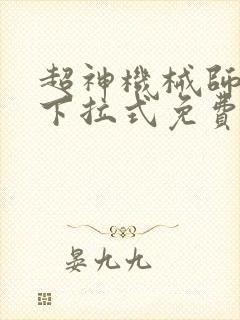 超神機械師
下拉式免費
晏九九